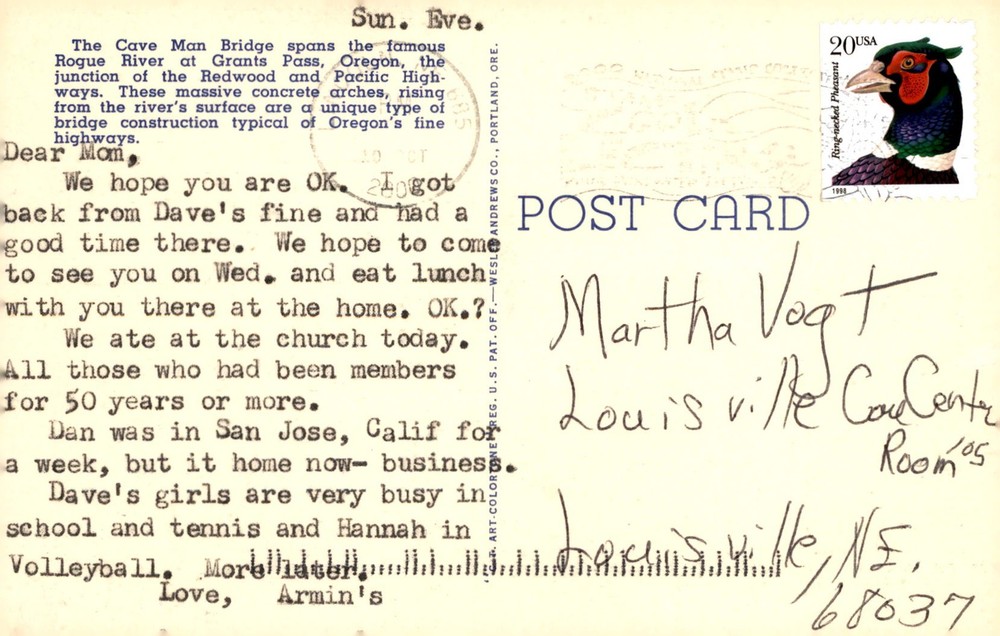 Sun. Eve.
The Cave Man Bridge spans the famous
Rogue River at Grants Pass, Oregon, the
junction of the Redwood and Pacific High-
ways. These massive concrete arches, rising
from the river's surface are a unique type of
bridge construction typical of Oregon's fine
highways.
Dear Mom,
We hope you are OK. I got
back from Dave's fine and had a
good time there. We hope to come
to see you on Wed. and eat lunch
with you there at the home. OK.?
We ate at the church today.
All those who had been members
for 50 years or more.
Dan was in San Jose, Calif for
a week, but it home now- business.
Dave's girls are very busy in
school and tennis and Hannah in
Volleyball. More later.
Love, Armin's
REG. U.S. PAT. OFF.—WESLEY ANDREWS CO., PORTLAND, ORE.
20 USA
Ring-necked Pheasant
1998
POST CARD
Martha Vogt
Louisville Care Center
Room 105
Louisville, NE.
68037